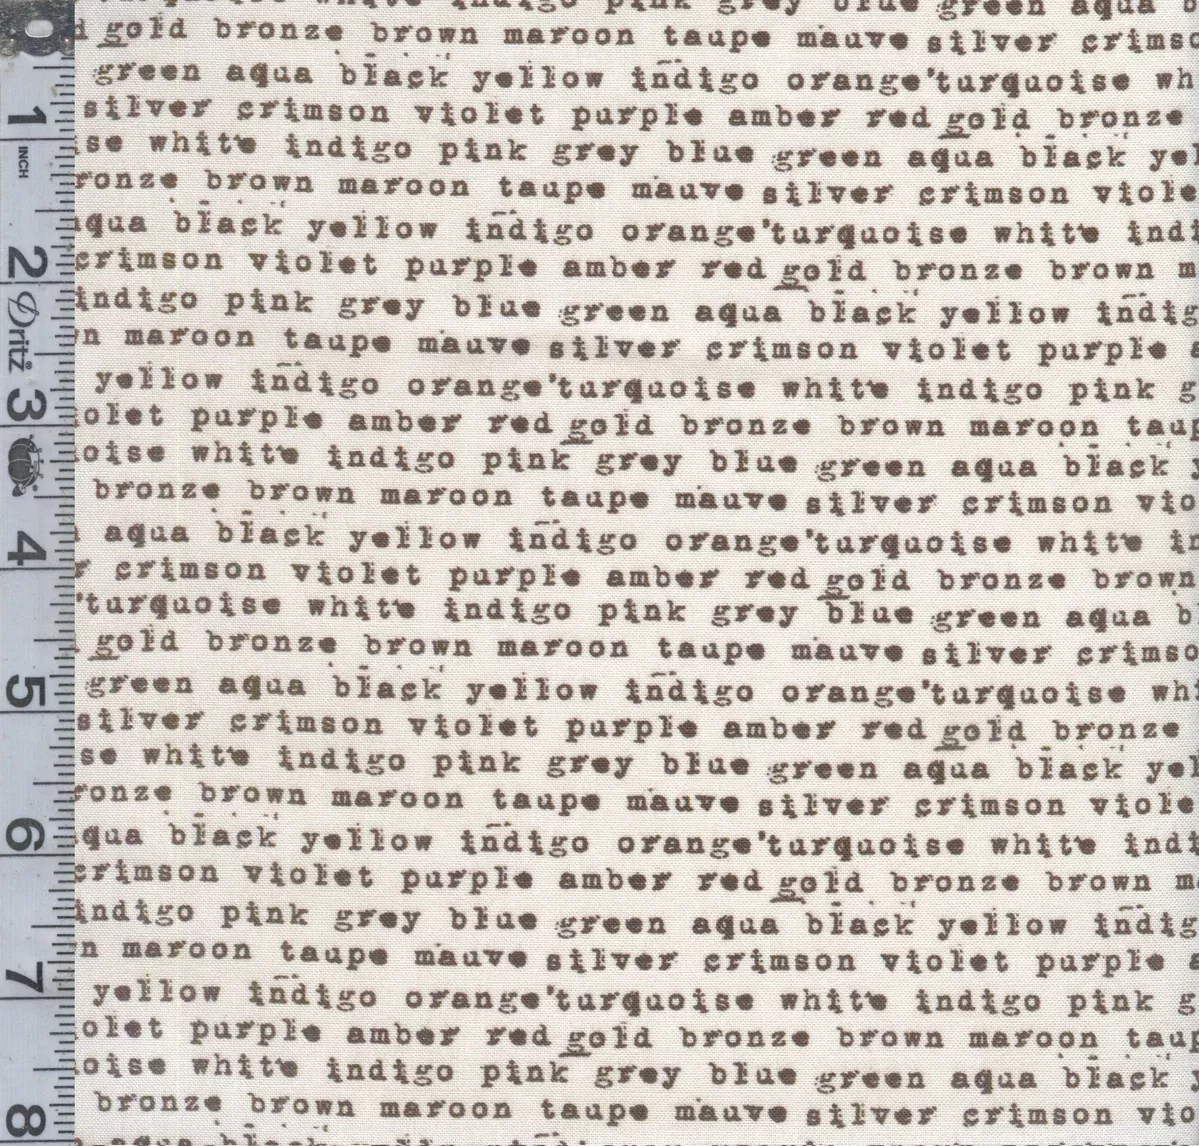 white indigo pink grey blue green aqua
gold bronze brown maroon taupe mauve silver crimso
green aqua black yellow indigo orange'turquoise wh
silver crimson violet purple amber red gold bronze
se white indigo pink grey blue green aqua black yel
ronze brown maroon taupe mauve silver crimson viole
qua black yellow indigo orange'turquoise white indi
crimson violet purple amber red gold bronze brown m
indigo pink grey blue green aqua black yellow indig
n maroon taupe mauve silver crimson violet purple a
yellow indigo orange'turquoise white indigo pink g
olet purple amber red gold bronze brown maroon taup
oise white indigo pink grey blue green aqua black
bronze brown maroon taupe mauve silver crimson vio
aqua black yellow indigo orange'turquoise white in
r crimson violet purple amber red gold bronze brown
'turquoise white indigo pink grey blue green aqua b
gold bronze brown maroon taupe mauve silver crimso
green aqua black yellow indigo orange'turquoise whi
silver crimson violet purple amber red gold bronze
se white indigo pink grey blue green aqua black yel
ronze brown maroon taupe mauve silver crimson viole
qua black yellow indigo orange'turquoise white indi
crimson violet purple amber red gold bronze brown m
indigo pink grey blue green aqua black yellow indig
n maroon taupe mauve silver crimson violet purple a
yellow indigo orange'turquoise white indigo pink g
olet purple amber red gold bronze brown maroon taup
oise white indigo pink grey blue green aqua black
bronze brown maroon taupe mauve silver crimson vio
1 INCH 2 Dritz 3 4 5 6 7 8